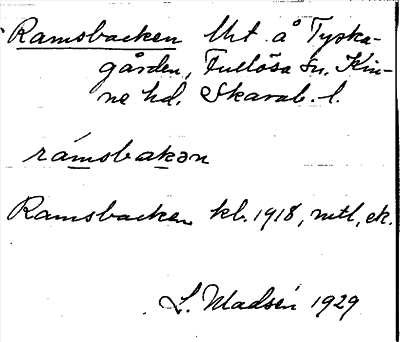 Ramsbacken Uht. å Tyska-
gården, Fullösa Sn. Kin-
ne hd. Skarab. l.
rámsbakən
Ramsbacken kb. 1918, mtl, ek.
L. Madsén 1929